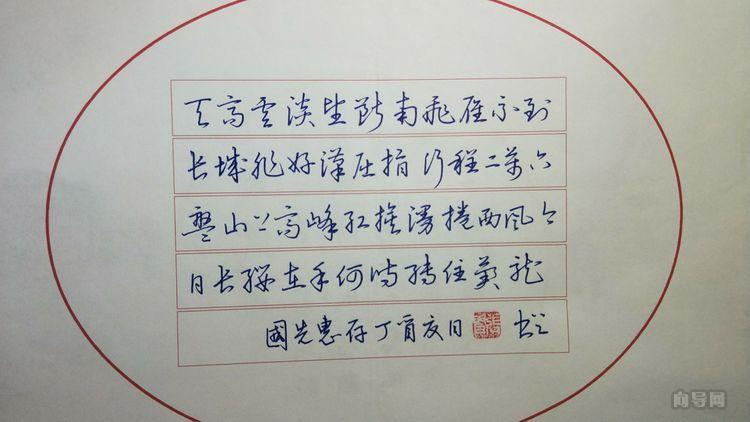 天高雲淡望断南飛雁不到
长城非好漢屈指行程二萬六
盤山上高峰红旗漫捲西风今
日长缨在手何时缚住苍龙
國先惠存丁酉夏日 书
向导网